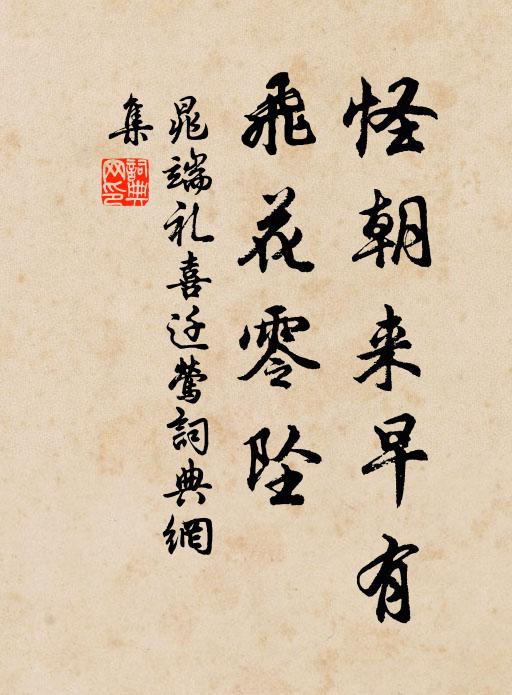 怪朝来早有
飛花零坠
晁端礼喜迁鶯詞典網
集
詞典网印